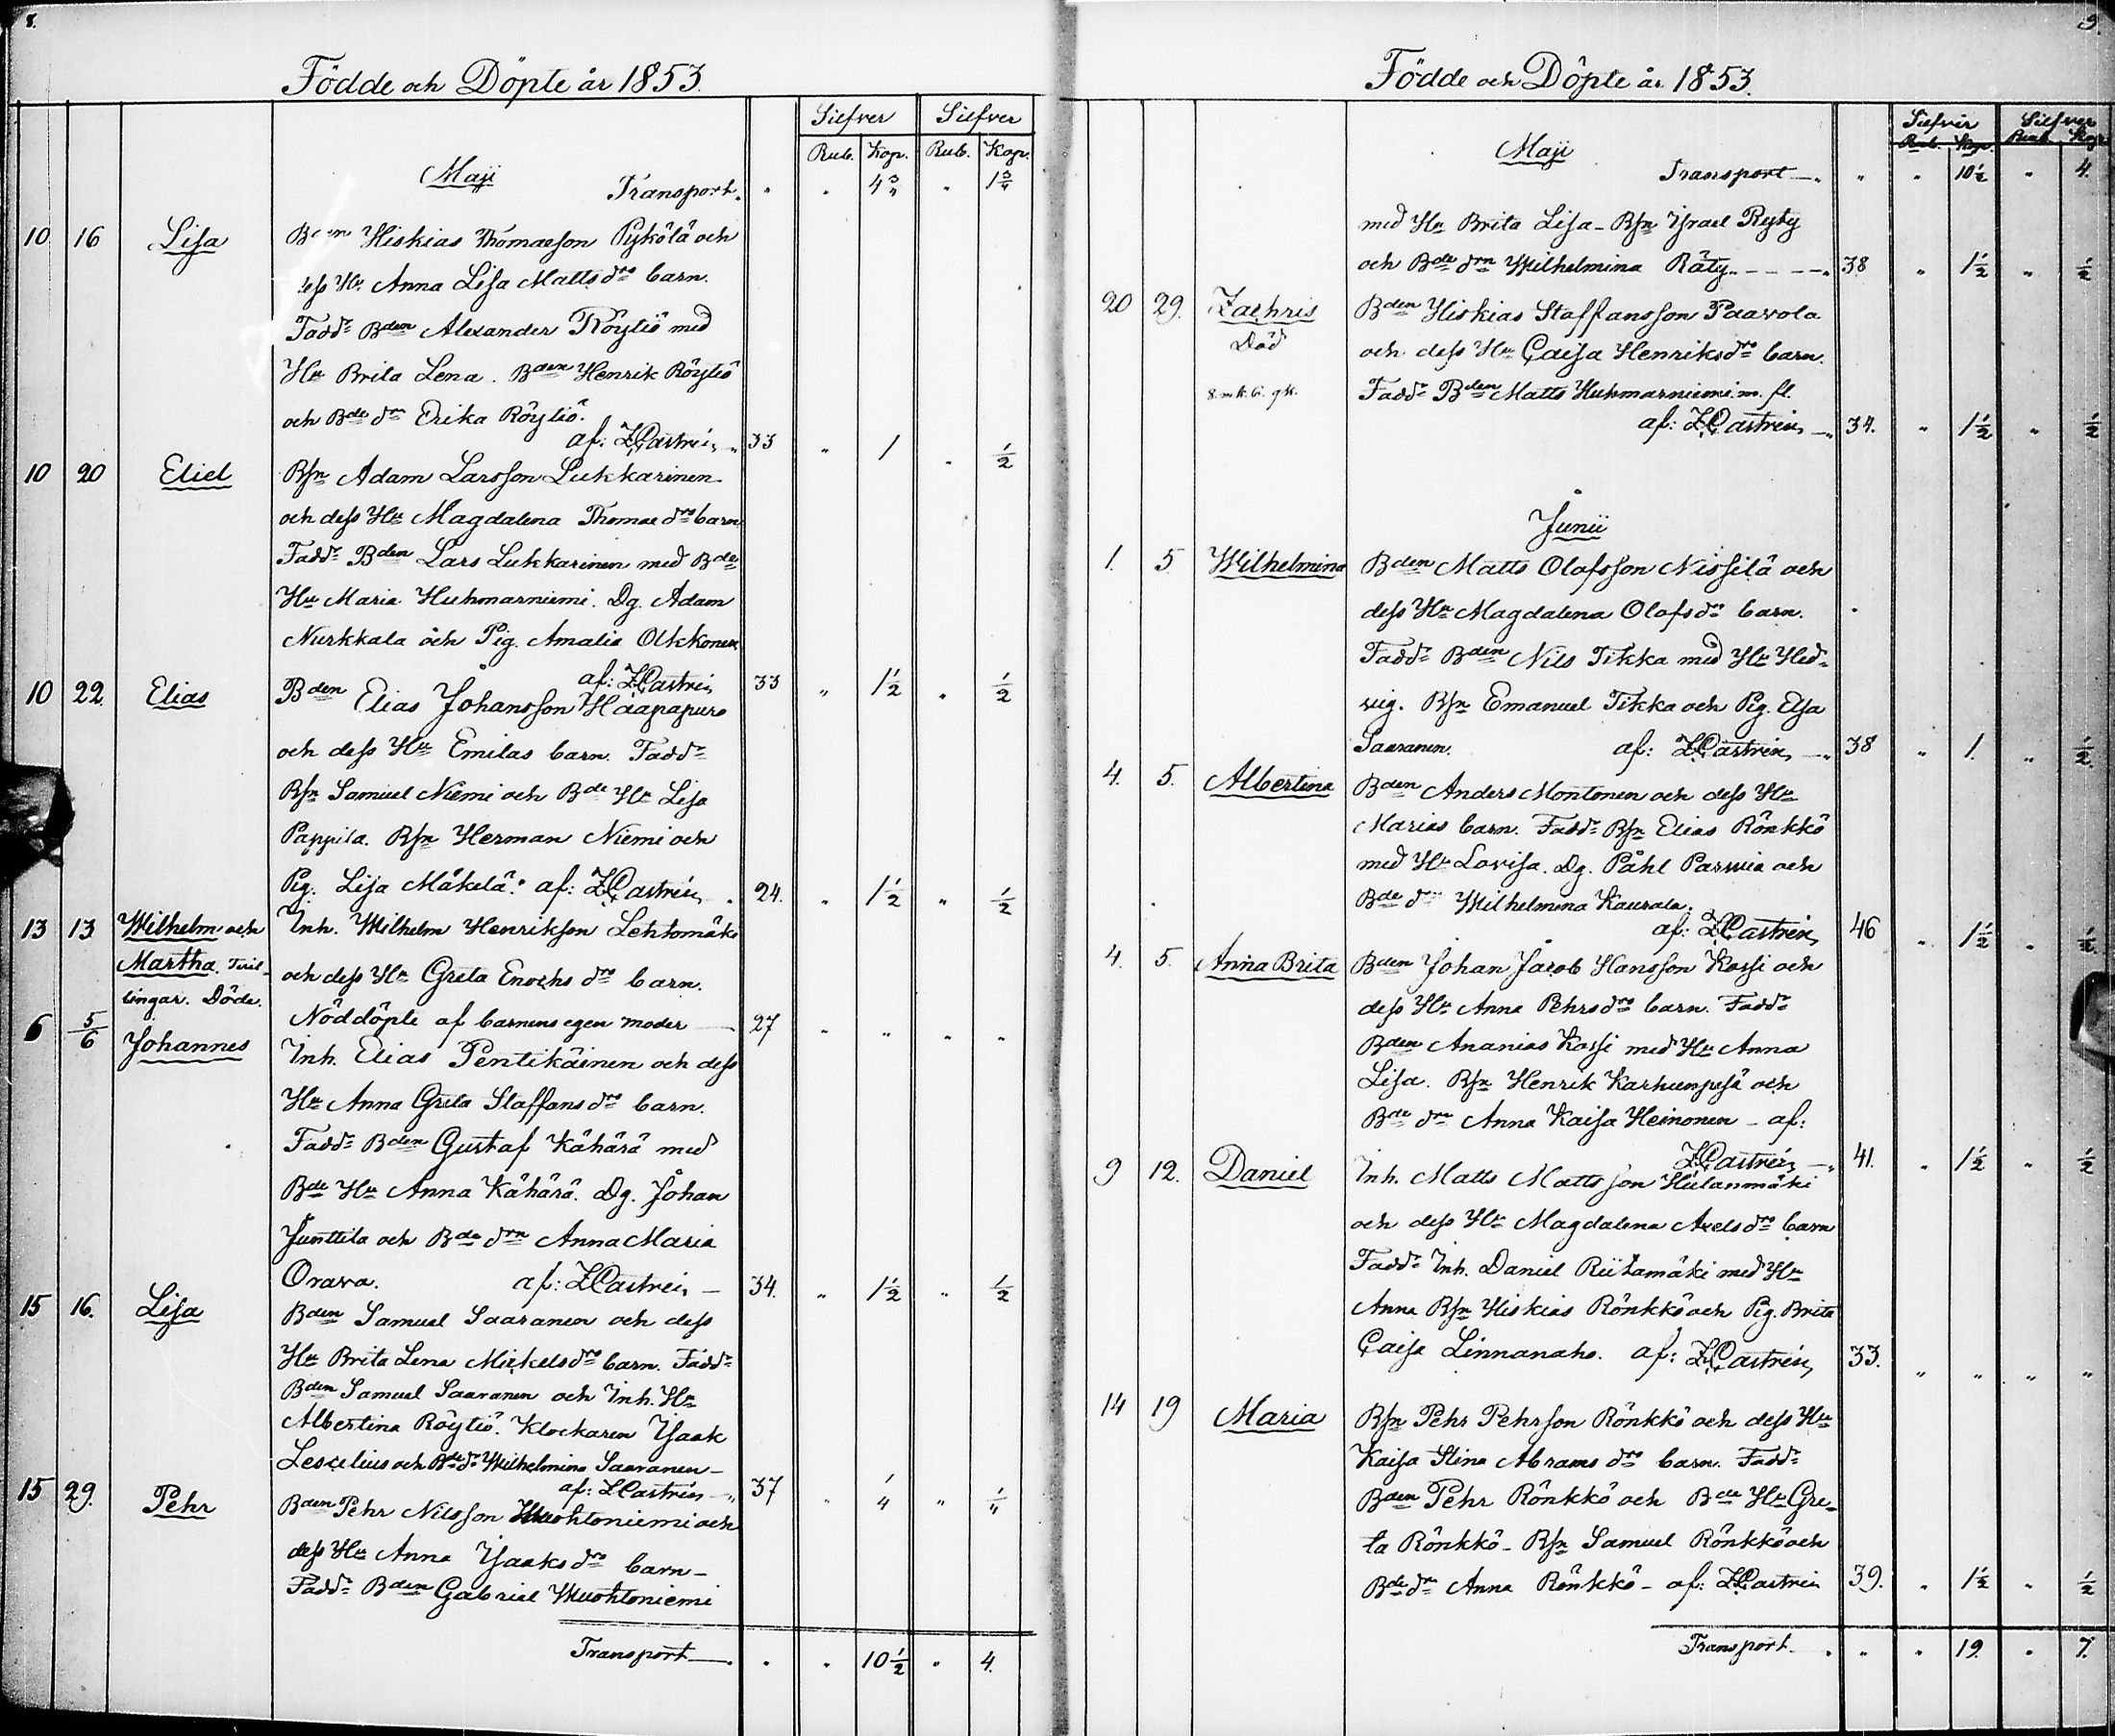 8.
Födde och Döpte år 1853.
Silfver Silfver
Rub. Kop. Rub. Kop.
Maji
Transport. " " 4 3/4 " 1 3/4
10 16 Lisa Bden Hiskias Thomasson Pykölä och
dess Hu Anna Lisa Mattsdrs barn.
Fadd: Bden Alexander Röytiö med
Hu Brita Lena. Bden Henrik Röytiö
och Bde drn Erika Röytiö.
af: Z Castrén 33 " 1 " 1/2
10 20 Eliel Bsn Adam Larsson Lukkarinen
och dess Hu Magdalena Thomae drs barn
Fadd: Bden Lars Lukkarinen med Bde
Hu Maria Huhmarniemi. Dg. Adam
Nurkkala och Pig. Amalia Olkkonen
af: Z Castrén 33 " 1 1/2 " 1/2
10 22. Elias Bden Elias Johansson Haapapuro
och dess Hu Emilas barn. Fadd:
Bsn Samuel Niemi och Bde Hu Lisa
Pappila. Bsn Herman Niemi och
Pig. Lisa Mäkelä. af: Z Castrén 24. " 1 1/2 " 1/2
13 13 Wilhelm och Inh. Wilhelm Henriksson Lehtomäki
Martha. Tvil- och dess Hu Greta Enochs drs barn.
lingar. Döde. Nöddöpte af barnens egen moder — 27 " " " "
6 5/6 Johannes Inh. Elias Pentikäinen och dess
Hu Anna Greta Staffans drs barn.
Fadd: Bden Gustaf Kähärä med
Bde Hu Anna Kähärä. Dg. Johan
Junttila och Bde drn Anna Maria
Orava. af: Z Castrén — 34. " 1 1/2 " 1/2
15 16. Lisa Bden Samuel Saaranen och dess
Hu Brita Lena Mickelsdrs barn. Fadd:
Bden Samuel Saaranen och Inh. Hu
Albertina Röytiö. Klockaren Isaak
Lescelius och Bde dr Wilhelmina Saaranen —
af: Z Castrén — 37 " 1/4 " 1/4
15 29. Pehr Bden Pehr Nilsson Wuohtoniemi och
dess Hu Anna Isaaks drs barn —
Fadd: Bden Gabriel Wuohtoniemi
Transport — " " 10 1/2 " 4.
9.
Födde och Döpte år 1853.
Silfver Silfver
Rub. Kop. Rub. Kop.
Maji
Transport — " " 10 1/2 " 4.
med Hu Brita Lisa — Bsn Israel Ryty
och Bde drn Wilhelmina Räty. - - - - 38 " 1 1/2 " 1/2
20 29. Zachris Bden Hiskias Staffansson Paavola
Död och dess Hu Caisa Henriksdrs barn.
Fadd: Bden Matts Huhmarniemi m. fl.
af: Z Castrén — 34. " 1 1/2 " 1/2
Junii
1. 5. Wilhelmina Bden Matts Olofsson Nissilä och
dess Hu Magdalena Olofs drs barn.
Fadd: Bden Nils Tikka med Hu Hed-
vig. Bsn Emanuel Tikka och Pig. Elsa
Saaranen. af: Z Castrén — 38 " 1. " 1/2.
4. 5. Albertina Bden Anders Montonen och dess Hu
Marias barn. Fadd: Bsn Elias Rönkkö
med Hu Lovisa. Dg. Påhl Parvia och
Bde drn Wilhelmina Kaurala.
af: Z Castrén 46 " 1 1/2 " 1/2
4. 5. Anna Brita Bden Johan Jacob Hansson Kossi och
dess Hu Anna Pehrs drs barn. Fadd:
Bden Ananias Kossi med Hu Anna
Lisa. Bsn Henrik Karhunpesä och
Bde drn Anna Kaisa Heinonen — af:
Z Castrén — 41. " 1 1/2 " 1/2
9 12. Daniel Inh. Matts Mattsson Hiilanmäki
och dess Hu Magdalena Axels drs barn
Fadd: Inh. Daniel Riitamäki med Hu
Anna Bsn Hiskias Rönkkö och Pig. Brita
Caisa Linnanaho. af: Z Castrén 33. " " " "
14 19 Maria Bsn Pehr Pehrsson Rönkkö och dess Hu
Kaisa Stina Abrams drs barn. Fadd:
Bden Pehr Rönkkö och Bde Hu Gre-
ta Rönkkö — Bsn Samuel Rönkkö och
Bde drn Anna Rönkkö — af: Z Castrén 39. " 1 1/2 " 1/2
Transport — " " 19. " 7.